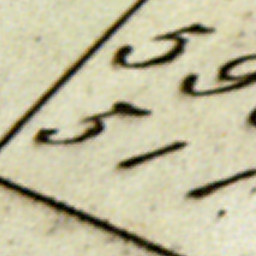 59
511